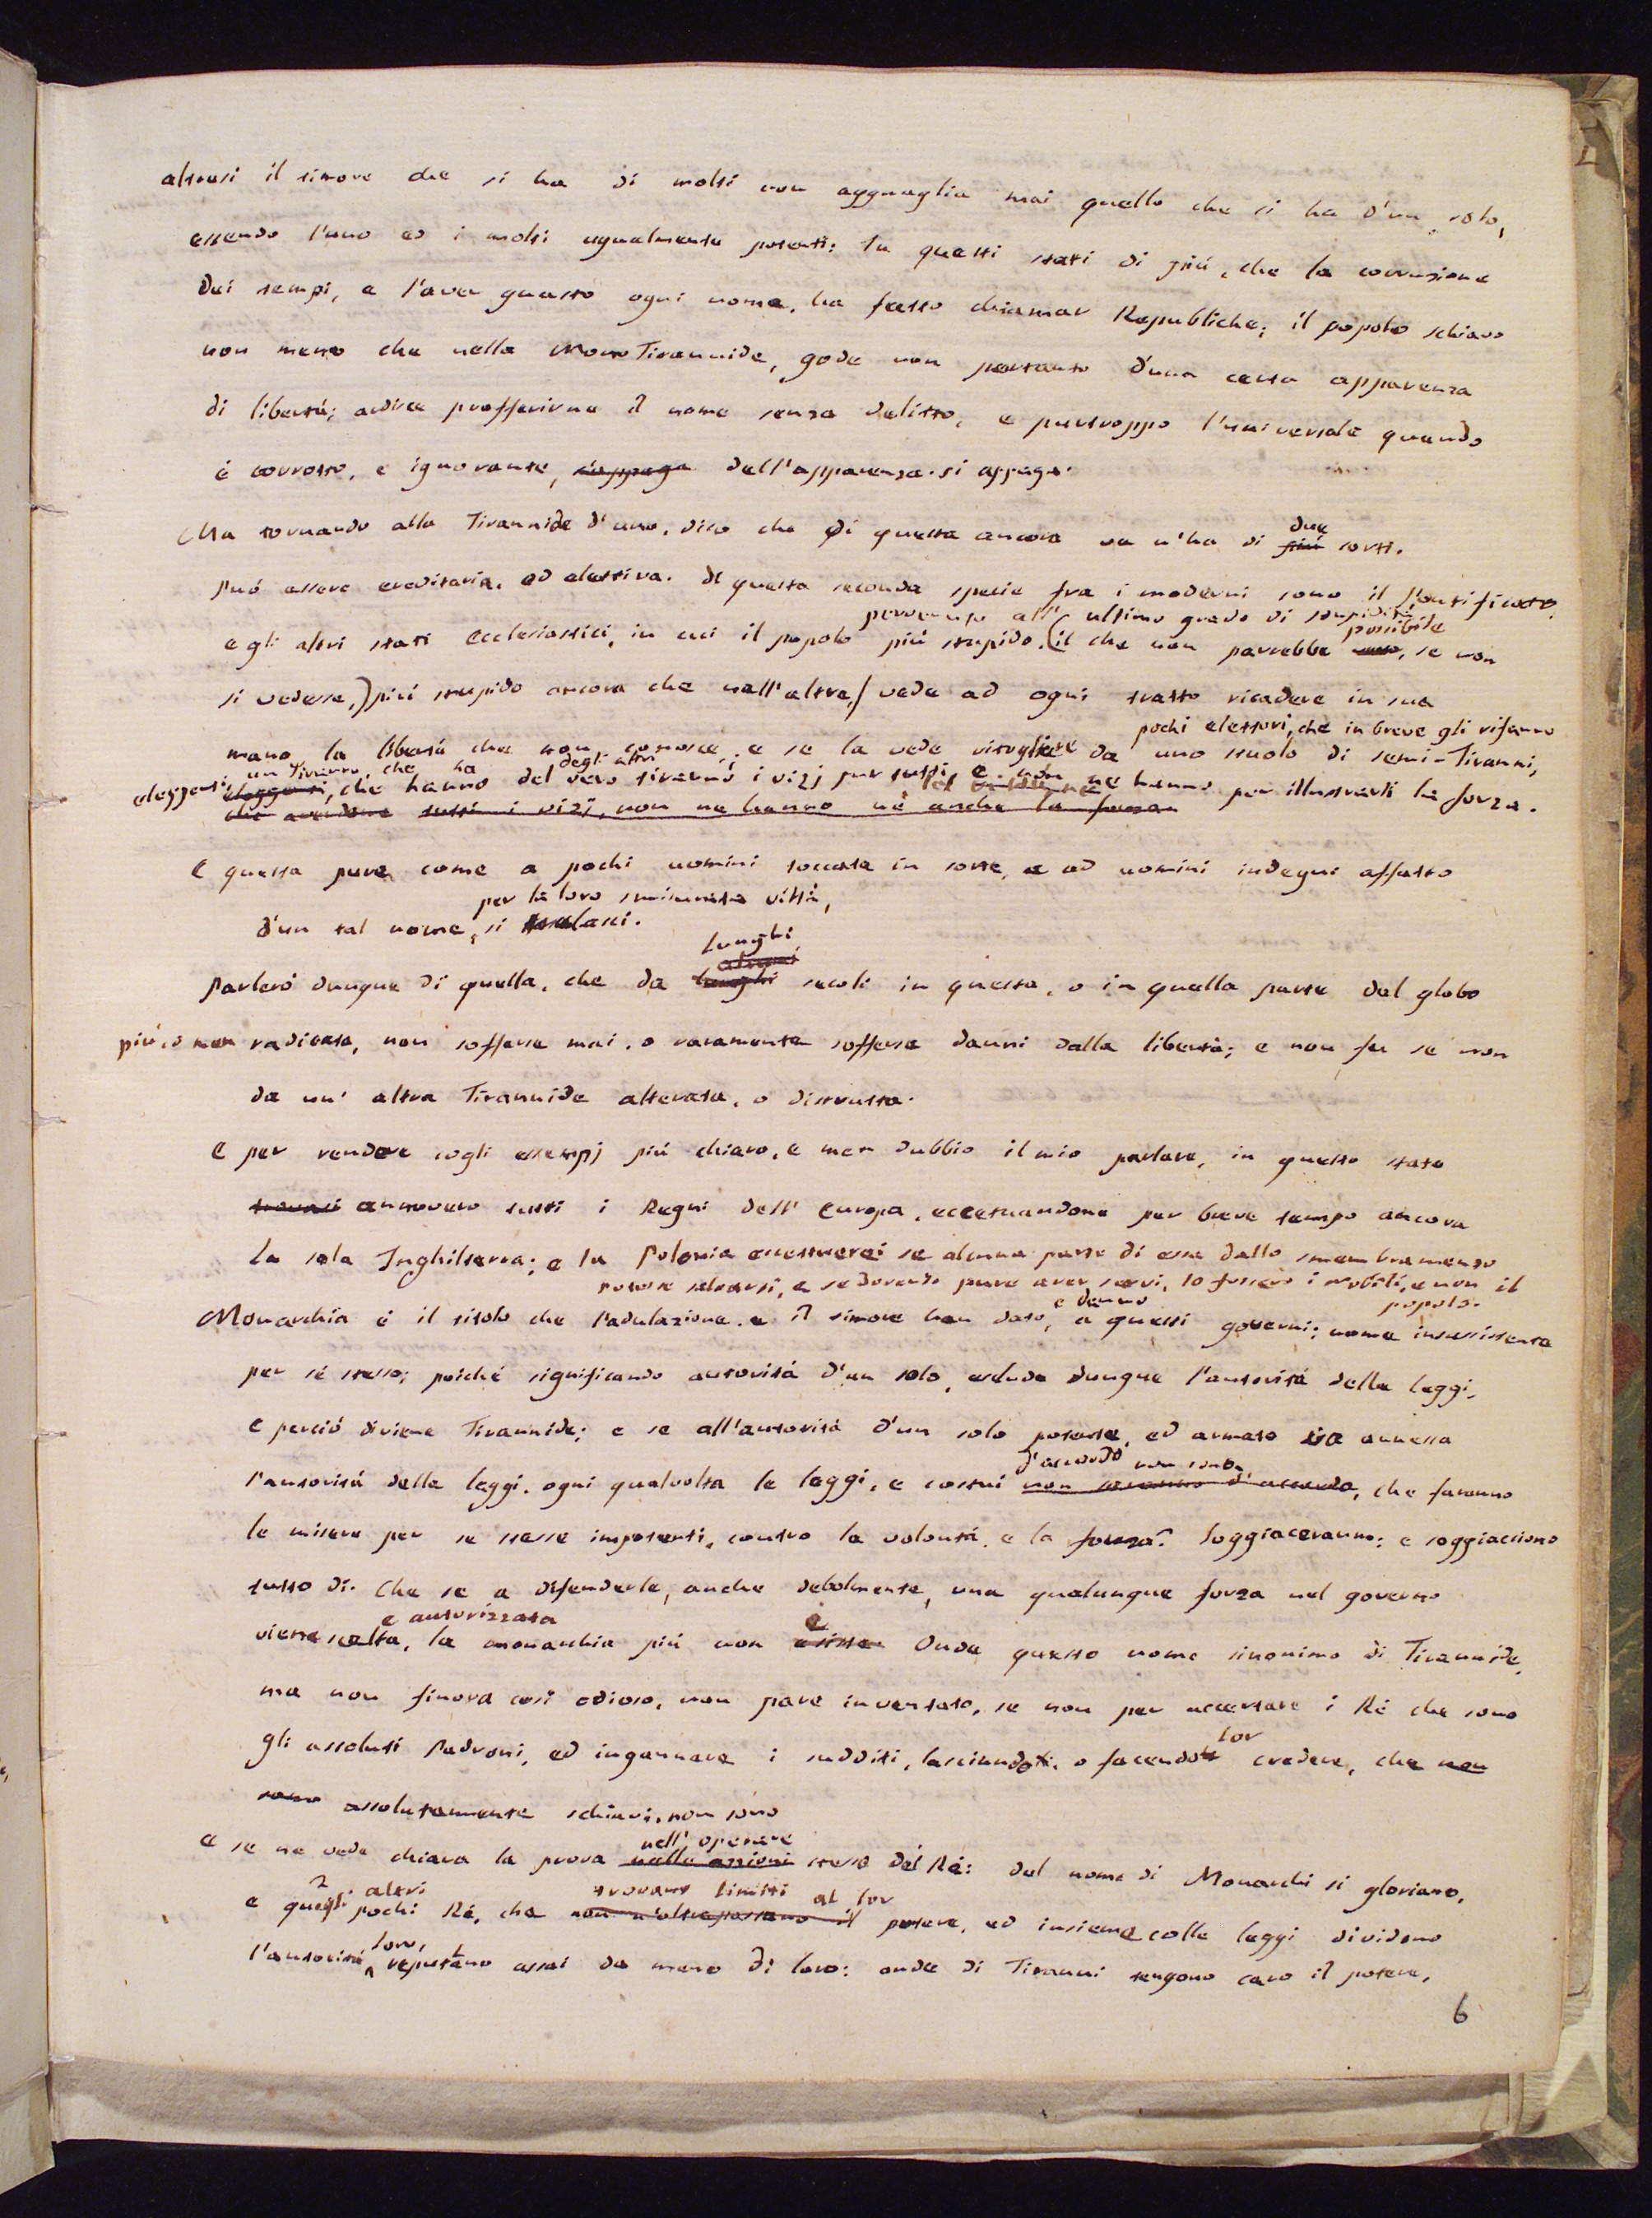 altresi il timore che si ha di molti non agguaglia mai quello che si ha d'un solo,
essendo l'uno ed i molti ugualmente potenti: In questi stati di più, che la corruzione
dei tempi, e l'aver guasto ogni nome, ha fatto chiamar Republiche; il popolo schiavo
non meno che nella Mono Tirannide, gode non pertanto d'una certa apparenza
di libertà; ardisce profferirne il nome senza delitto, e purtroppo l'universale quando
è corrotto, e ignorante, s'appaga dell'apparenza si appaga.
Ma tornando alla Tirannide d'uno, dico che di questa ancora ve n'ha di più sorti.
due
Può essere ereditaria, ed elettiva. Di questa seconda specie fra i moderni sono il Pontificato,
pervenuto all' ultimo grado di stupidità
possibile
e gli altri stati Ecclesiastici, in cui il popolo più stupido, (il che non parrebbe, se non
si vedesse,) più stupido ancora che nell'altre,) vede ad ogni tratto ricadere in sua
pochi elettori, che in breve gli rifanno
mano la libertà che non conosce, e se la vede ritogliere da uno stuolo di semi-Tiranni,
un Tiranno, che ha degli altri
eleggenti, che hanno del vero tiranno i vizj pur tutti, e non ne hanno per illustrarli la forza.
che avendone tutti i vizj, non ne hanno nè anche la forza
E questa pure come a pochi uomini toccata in sorte, e ad uomini indegni affatto
per la loro smisurata viltà,
d'un tal nome, si tralasci.
lunghi
alcuni
Parlerò dunque di quella, che da lunghi secoli in questa, o in quella parte del globo
più, o men radicata, non sofferse mai, o raramente sofferse danni dalla libertà; e non fu se non
da un' altra Tirannide alterata, o distrutta.
E per rendere cogli essempj più chiaro, e men dubbio il mio parlare, in questo stato
trovansi annovero tutti i Regni dell' Europa, eccettuandone per breve tempo ancora
la sola Inghilterra; e la Polonia eccettuerei se alcuna parte di essa dallo smembramento
potesse salvarsi, e se dovendo pure aver servi, lo fossero i nobili, e non il
popolo.
e danno
Monarchia è il titolo che l'adulazione, e il timore han dato, a questi governi; nome insussistente
per sé stesso; poiché significando autorità d'un solo, esclude dunque l'autorità delle leggi,
e perciò diviene Tirannide; e se all'autorità d'un solo potente, ed armato sia annessa
d'accordo non sono,
l'autorità delle leggi, ogni qualvolta le leggi, e costui non saranno d'accordo, che faranno
le misere per se stesse impotenti, contro la volontà, e la forza? Soggiaceranno: e soggiacciono
tutto dì. Che se a difenderle, anche debolmente, una qualunque forza nel governo
e autorizzata
viene scelta, la monarchia più non esiste. Onde questo nome sinonimo di Tirannide,
è
ma non finora così odioso, non pare inventato, se non per accertare i Ré che sono
lor
gli assoluti Padroni, ed ingannare i sudditi, lasciandoli, o facendoli credere, che non
sono assolutamente schiavi, non sono
nell' operare
E se ne vede chiara la prova nelle azioni stesso dei Ré: del nome di Monarchi si gloriano,
2 altri trovano limiti al lor
e quegli pochi Ré, che non n'oltrepassano il potere, ed insieme colle leggi dividono
loro,
l'autorità reputano assai da meno di loro: onde di Tiranni tengono caro il potere,
6